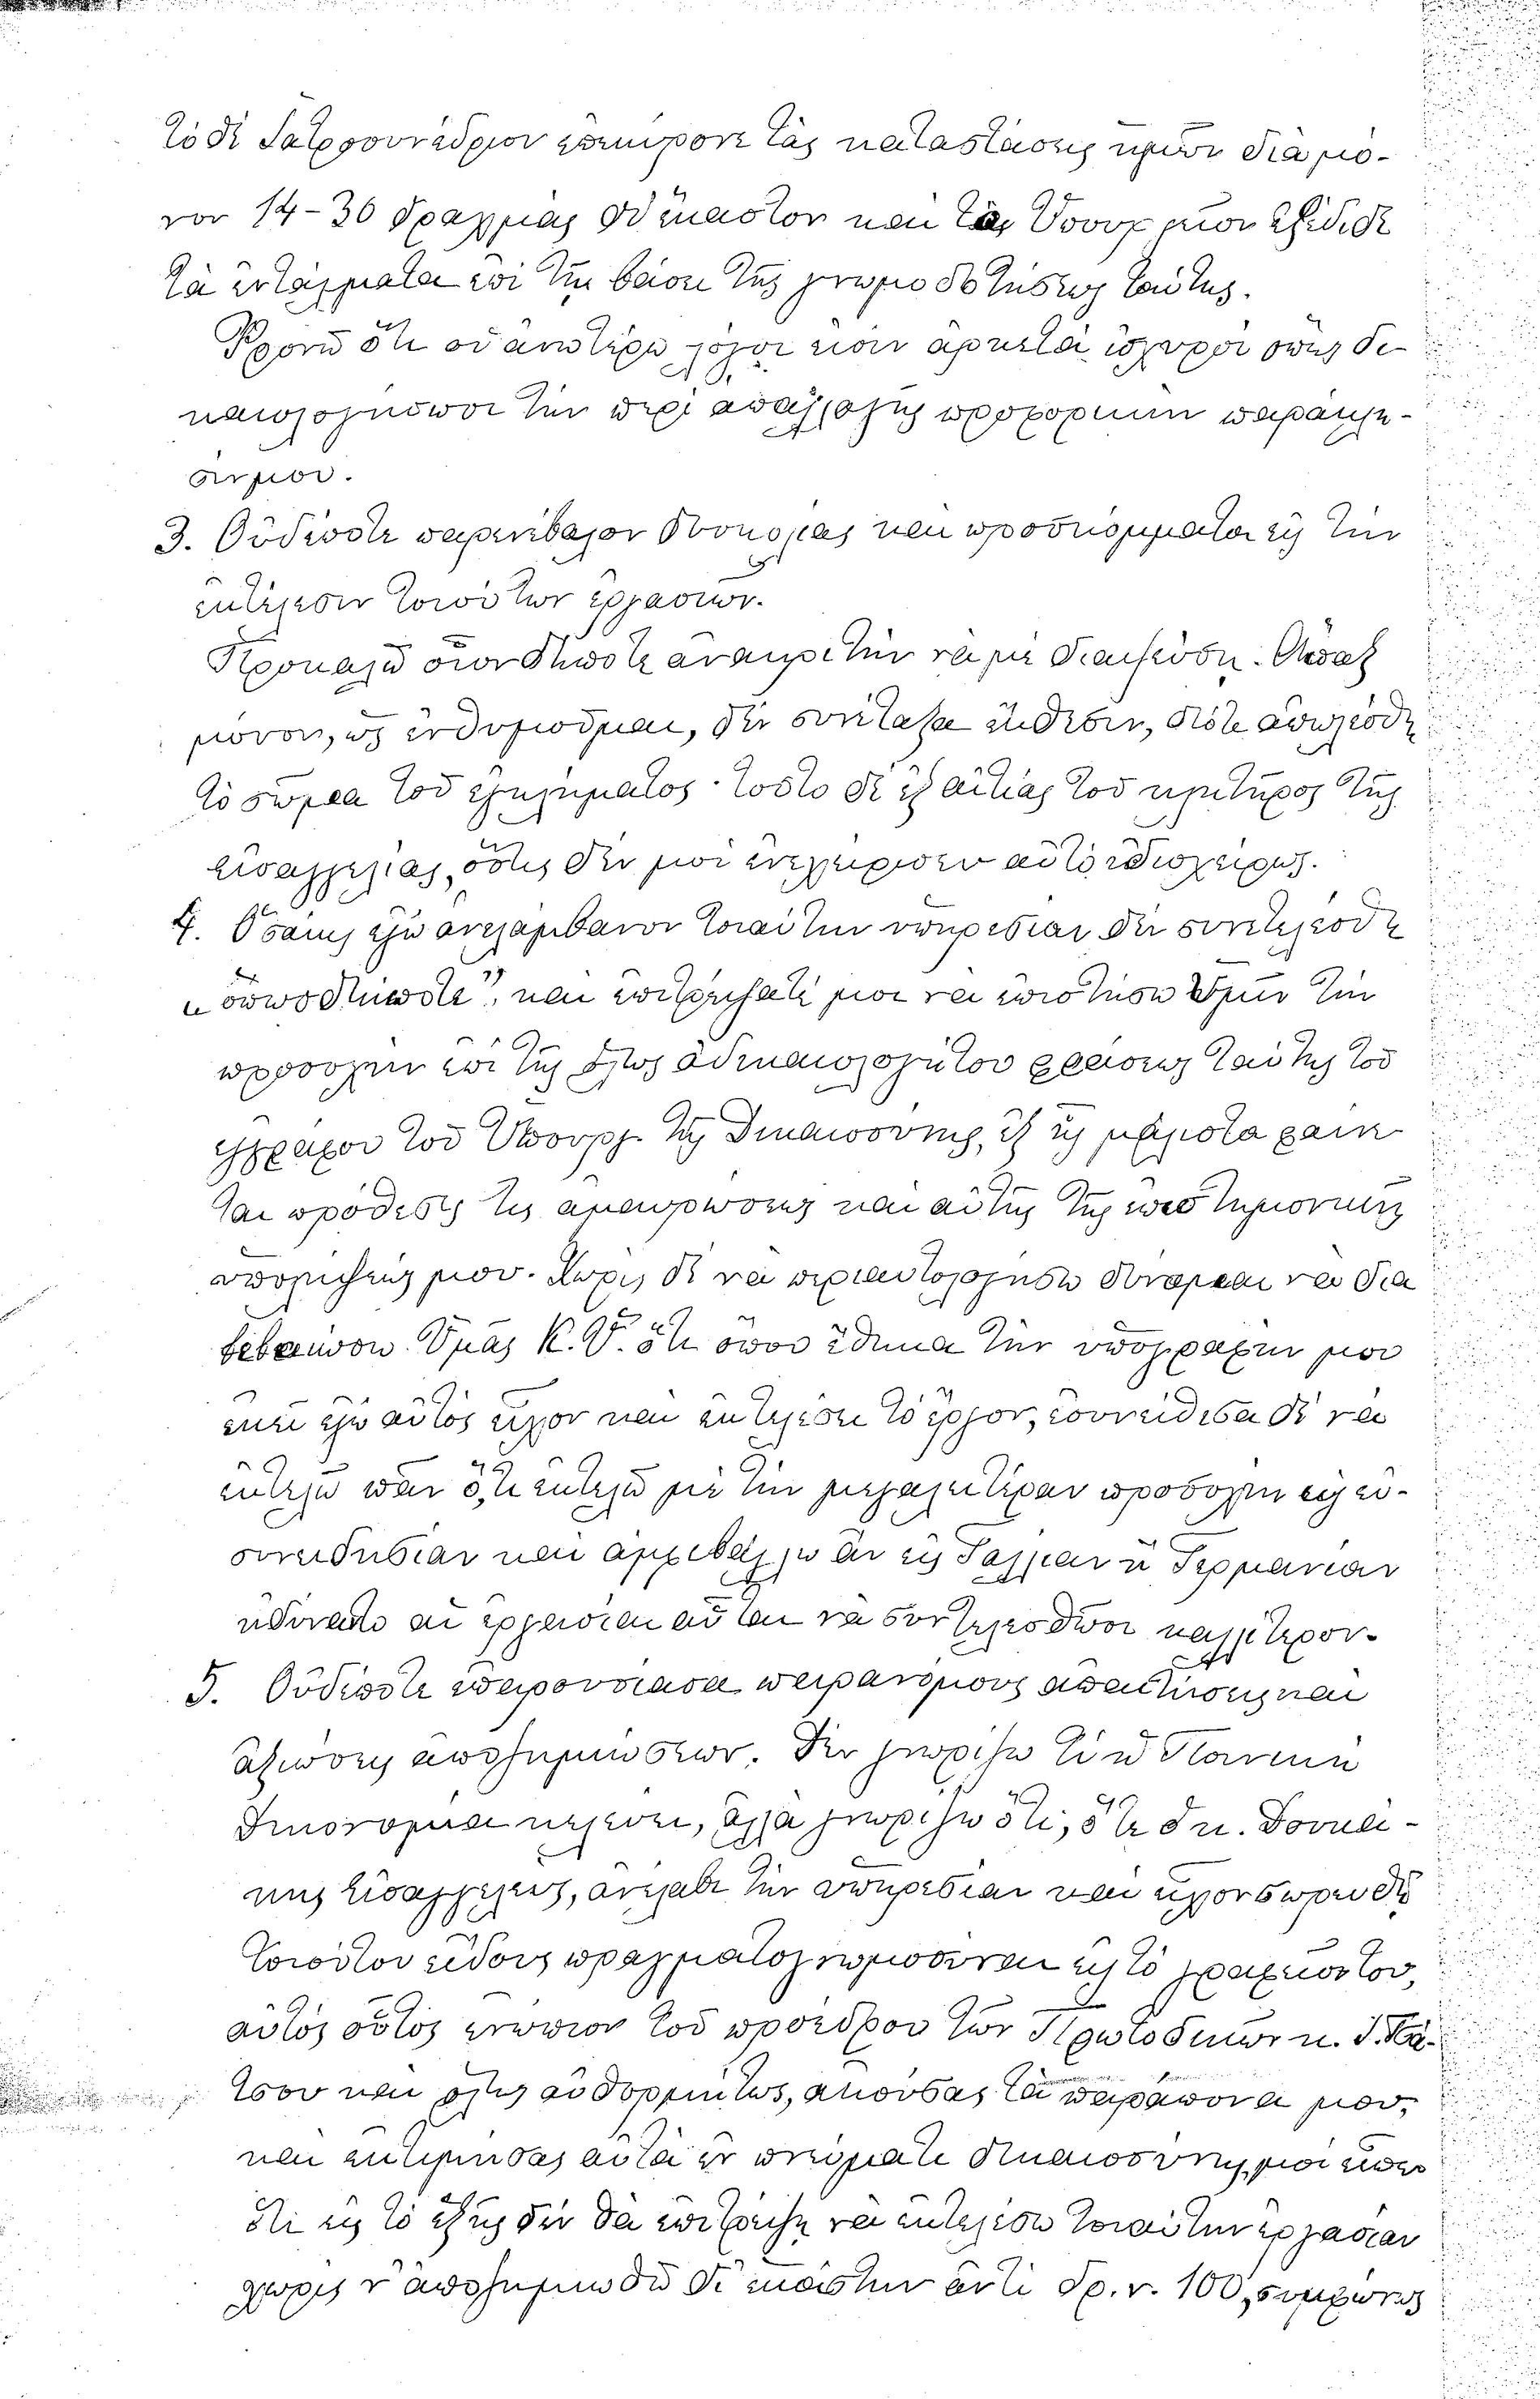 τὸ δὲ Ἰατροσυνέδριον ἐπεκύρου τὰς καταστάσεις ἡμῶν διὰ μό-
νον 14-30 δραχμὰς δι' ἕκαστον καὶ τὸ Ὑπουργεῖον ἐξέδιδε
τὰ ἐντάλματα ἐπὶ τῇ βάσει τῆς γνωμοδοτήσεως ταύτης.
Φρονῶ ὅτι οἱ ἀνωτέρω λόγοι εἰσὶν ἀρκετὰ ἰσχυροὶ ὅπως δι-
καιολογήσωσι τὴν περὶ ἀπαλλαγῆς προφορικὴν παράκλη-
σίν μου.
3. Οὐδέποτε παρενέβαλον δυσκολίας καὶ προσκόμματα εἰς τὴν
ἐκτέλεσιν τοιούτων ἐργασιῶν.
Προκαλῶ οἱονδήποτε ἀνακριτὴν νὰ μὲ διαψεύσῃ. Ἅπαξ
μόνον, ὡς ἐνθυμοῦμαι, δὲν συνέταξα ἔκθεσιν, διότι ἀπωλέσθη
τὸ σῶμα τοῦ ἐγκλήματος· τοῦτο δὲ ἐξ αἰτίας τοῦ κλητῆρος τῆς
Εἰσαγγελίας, ὅστις δὲν μοὶ ἐνεχείρισεν αὐτὸ ἰδιοχείρως.
4. Ὁσάκις ἐγὼ ἀνελάμβανον τοιαύτην ὑπηρεσίαν δὲν συνετελεῖτο
"ὁπωσδήποτε", καὶ ἐπιτρέψατέ μοι νὰ ἐπιστήσω Ὑμῶν τὴν
προσοχὴν ἐπὶ τῆς ὅλως ἀδικαιολογήτου φράσεως ταύτης τοῦ
ἐγγράφου τοῦ Ὑπουργ. τῆς Δικαιοσύνης, ἐξ ἧς μάλιστα φαίνε
ται πρόθεσίς τις ἀμαυρώσεως καὶ αὐτῆς τῆς ἐπιστημονικῆς
ὑπολήψεώς μου. Χωρὶς δὲ νὰ περιαυτολογήσω δύναμαι νὰ δια
βεβαιώσω Ὑμᾶς Κ.Υ. ὅτι ὅπου ἔθηκα τὴν ὑπογραφήν μου
ἐκεῖ ἐγὼ αὐτὸς εἶχον καὶ ἐκτελέσει τὸ ἔργον, ἐσυνείθισα δὲ νὰ
ἐκτελῶ πᾶν ὅ,τι ἐκτελῶ μὲ τὴν μεγαλειτέραν προσοχὴν καὶ εὐ-
συνειδησίαν καὶ ἀμφιβάλλω ἂν εἰς Γαλλίαν ἢ Γερμανίαν
ἠδύναντο αἱ ἐργασίαι αὗται νὰ συντελεσθῶσι καλλίτερον.
5. Οὐδέποτε ἐπαρουσίασα παρανόμους ἀπαιτήσεις καὶ
ἀξιώσεις ἀποζημιώσεων. Δὲν γνωρίζω τί ἡ Ποινικὴ
Δικονομία κελεύει, ἀλλὰ γνωρίζω ὅτι, ὅτε ὁ κ. Δουκά-
κης Εἰσαγγελεύς, ἀνέλαβε τὴν ὑπηρεσίαν καὶ εἶχον σωρευθῇ
τοιούτου εἴδους πραγματογνωμοσύναι εἰς τὸ γραφεῖόν του,
αὐτὸς οὗτος ἐνώπιον τοῦ προέδρου τῶν Πρωτοδικῶν κ. Ι. Κά-
τσου καὶ ὅλως αὐθορμήτως, ἀκούσας τὰ παράπονά μου,
καὶ ἐκτιμήσας αὐτὰ ἐν πνεύματι δικαιοσύνης, μοὶ εἶπεν
ὅτι εἰς τὸ ἑξῆς δὲν θὰ ἐπιτρέψῃ νὰ ἐκτελέσω τοιαύτην ἐργασίαν
χωρὶς ν' ἀποζημιωθῶ δι' ἑκάστην ἀντὶ δρ. ν. 100, συμφώνως